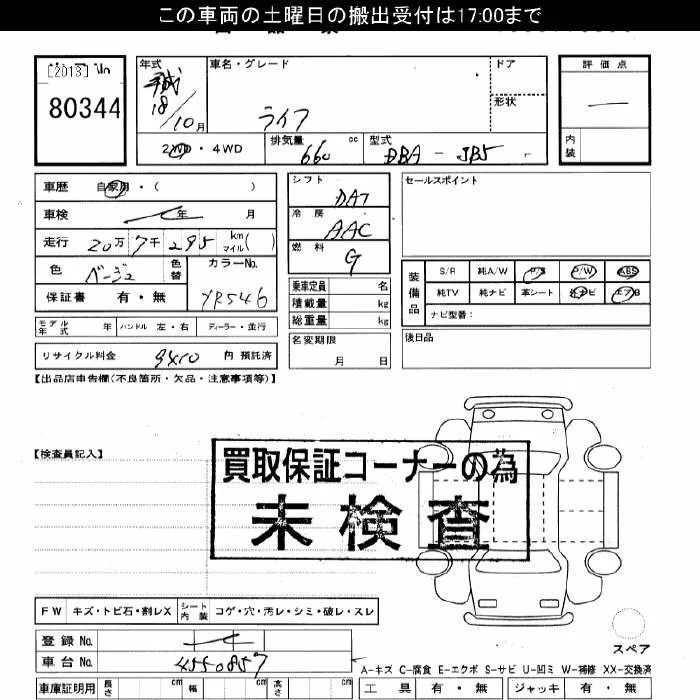 この車両の土曜日の搬出受付は17:00まで
[2013]
80344
年式 平成 18/10月
車名・グレード
ライフ
ドア
形状
評価点
内装
2WD・4WD
排気量 660 cc
型式 DBA - JB5
車歴 自家用・( )
車検 年 月
走行 20万7千295 km マイル( )
色 ベージュ 色替
カラーNo. YR546
保証書 有・無
シフト DAT
冷房 AAC
燃料 G
セールスポイント
乗車定員 名
積載量 kg
総重量 kg
装備品
S/R 純A/W P/S P/W ABS
純TV 純ナビ 革シート 社ナビ エアB
ナビ型番:
モデル年式 年 ハンドル 左・右 ディーラー・並行
名変期限 月 日
後日品
リサイクル料金 9410 円 預託済
【出品店申告欄(不良箇所・欠品・注意事項等)】
【検査員記入】
買取保証コーナーの為
未検査
FW キズ・トビ石・割レX シート内装 コゲ・穴・汚レ・シミ・破レ・スレ
登録No.
車台No. 4550857
スペア
A-キズ C-腐食 E-エクボ S-サビ U-凹ミ W-補修 XX-交換済
車庫証明用 長さ cm 幅 cm 高さ cm
工具 有・無 ジャッキ 有・無